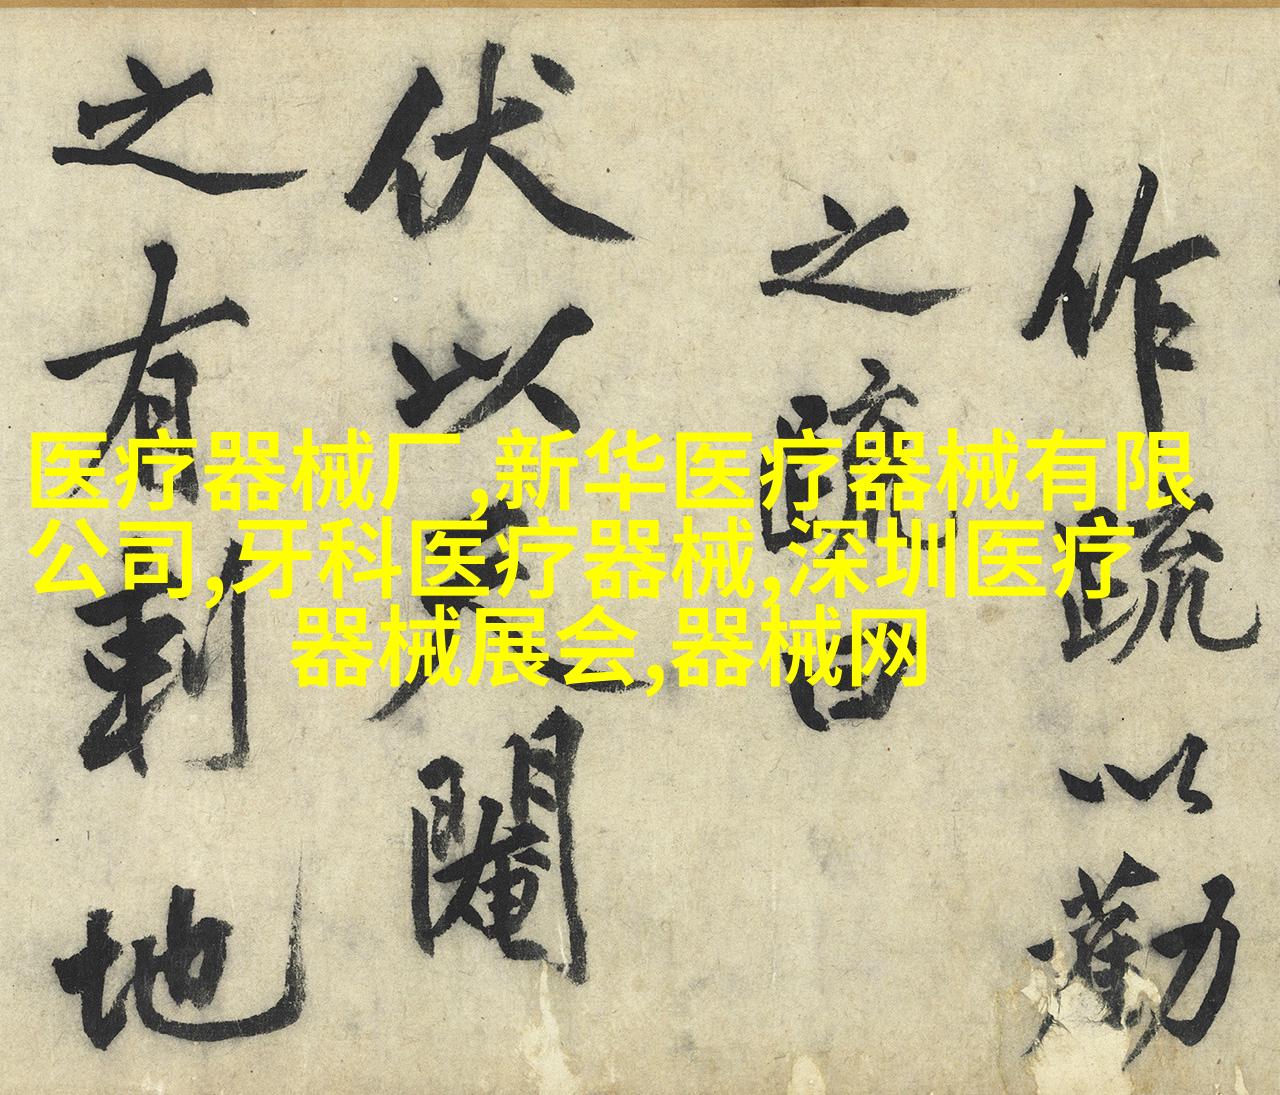 医疗器械厂,新华医疗器械有限
公司,牙科医疗器械,深圳医疗
器械展会,器械网
作疏以勸
之疏曰
伏以閹
之有剩地